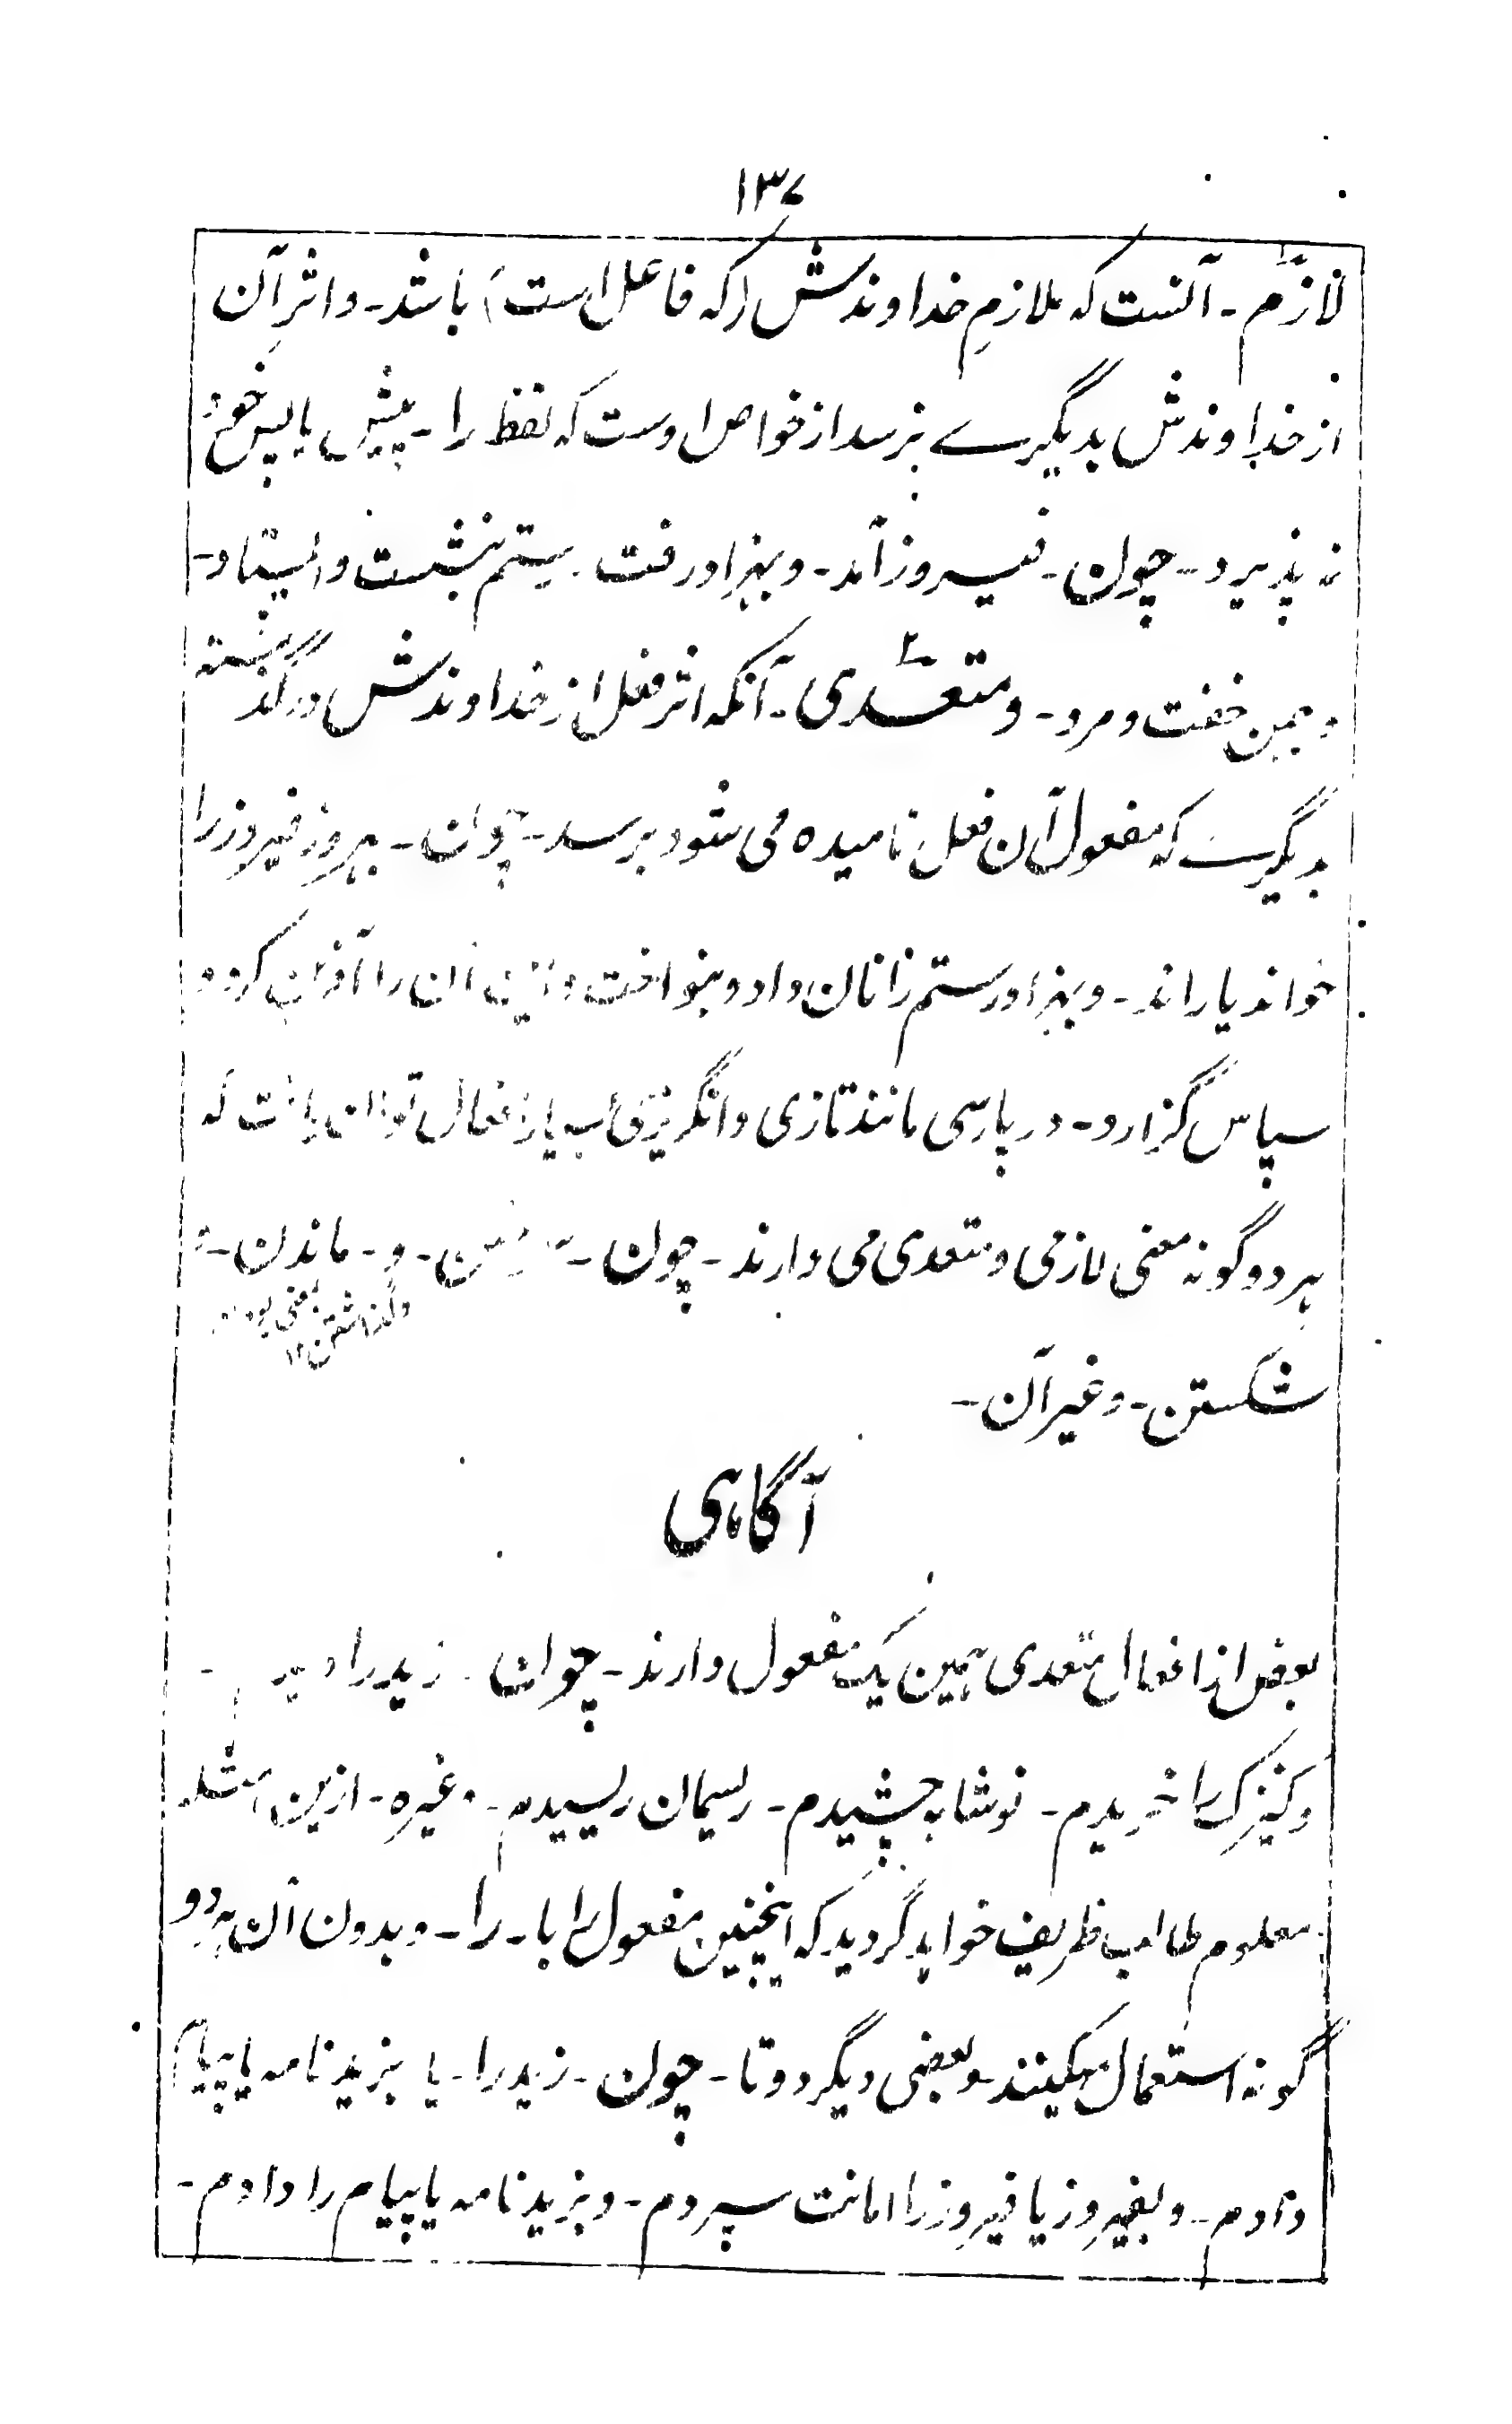 ۱۳۷
لازم - آنست که ملازمِ خداوندش (که فاعل است) باشد - و اثرِ آن
از خداوندش بدیگرے نرسد از خواص اوست که لفظ را - پیش یا پس خود
نه پذیرد - چون - فیروز آمد - و بهزاد رفت - رستم نشست و ایستاد -
و بهمن خفت و مرد - و متعدّی - آنکه اثر فعل از خداوندش درگذشته
بدیگرے که مفعول آن فعل نامیده می شود برسد - چون - بهروز فیروز را
خواند یا راند - و بهزاد رستم را نان داد و بنواخت و ان را آفرین کرد و
سپاس گزارد - در پارسی مانند تازی و انگریزی بسیار افعال توان یافت که
هر دو گونه معنی لازمی و متعدی می دارند - چون - و - ماندن -
بمعنی بودن
و گذاشتن ۱۲
شکستن - و غیر آن -
آگاهی
بعض از افعال متعدی همین یک مفعول دارند - چون - زید را دیدم
و کنیزک را خریدم - نوشابه چشیدم - ریسمان ریسیدم - و غیره - ازین امثله
معلوم طالب ظریف خواهد گردید که اینچنین مفعول را با - را - و بدون آن هر دو
گونه استعمال میکنند - و بعضی دیگر دو تا - چون - زید را - یا بزید نامه یا پیام
دادم - و بفیروز یا فیروز را امانت سپردم - و بزید نامه یا پیام را دادم -